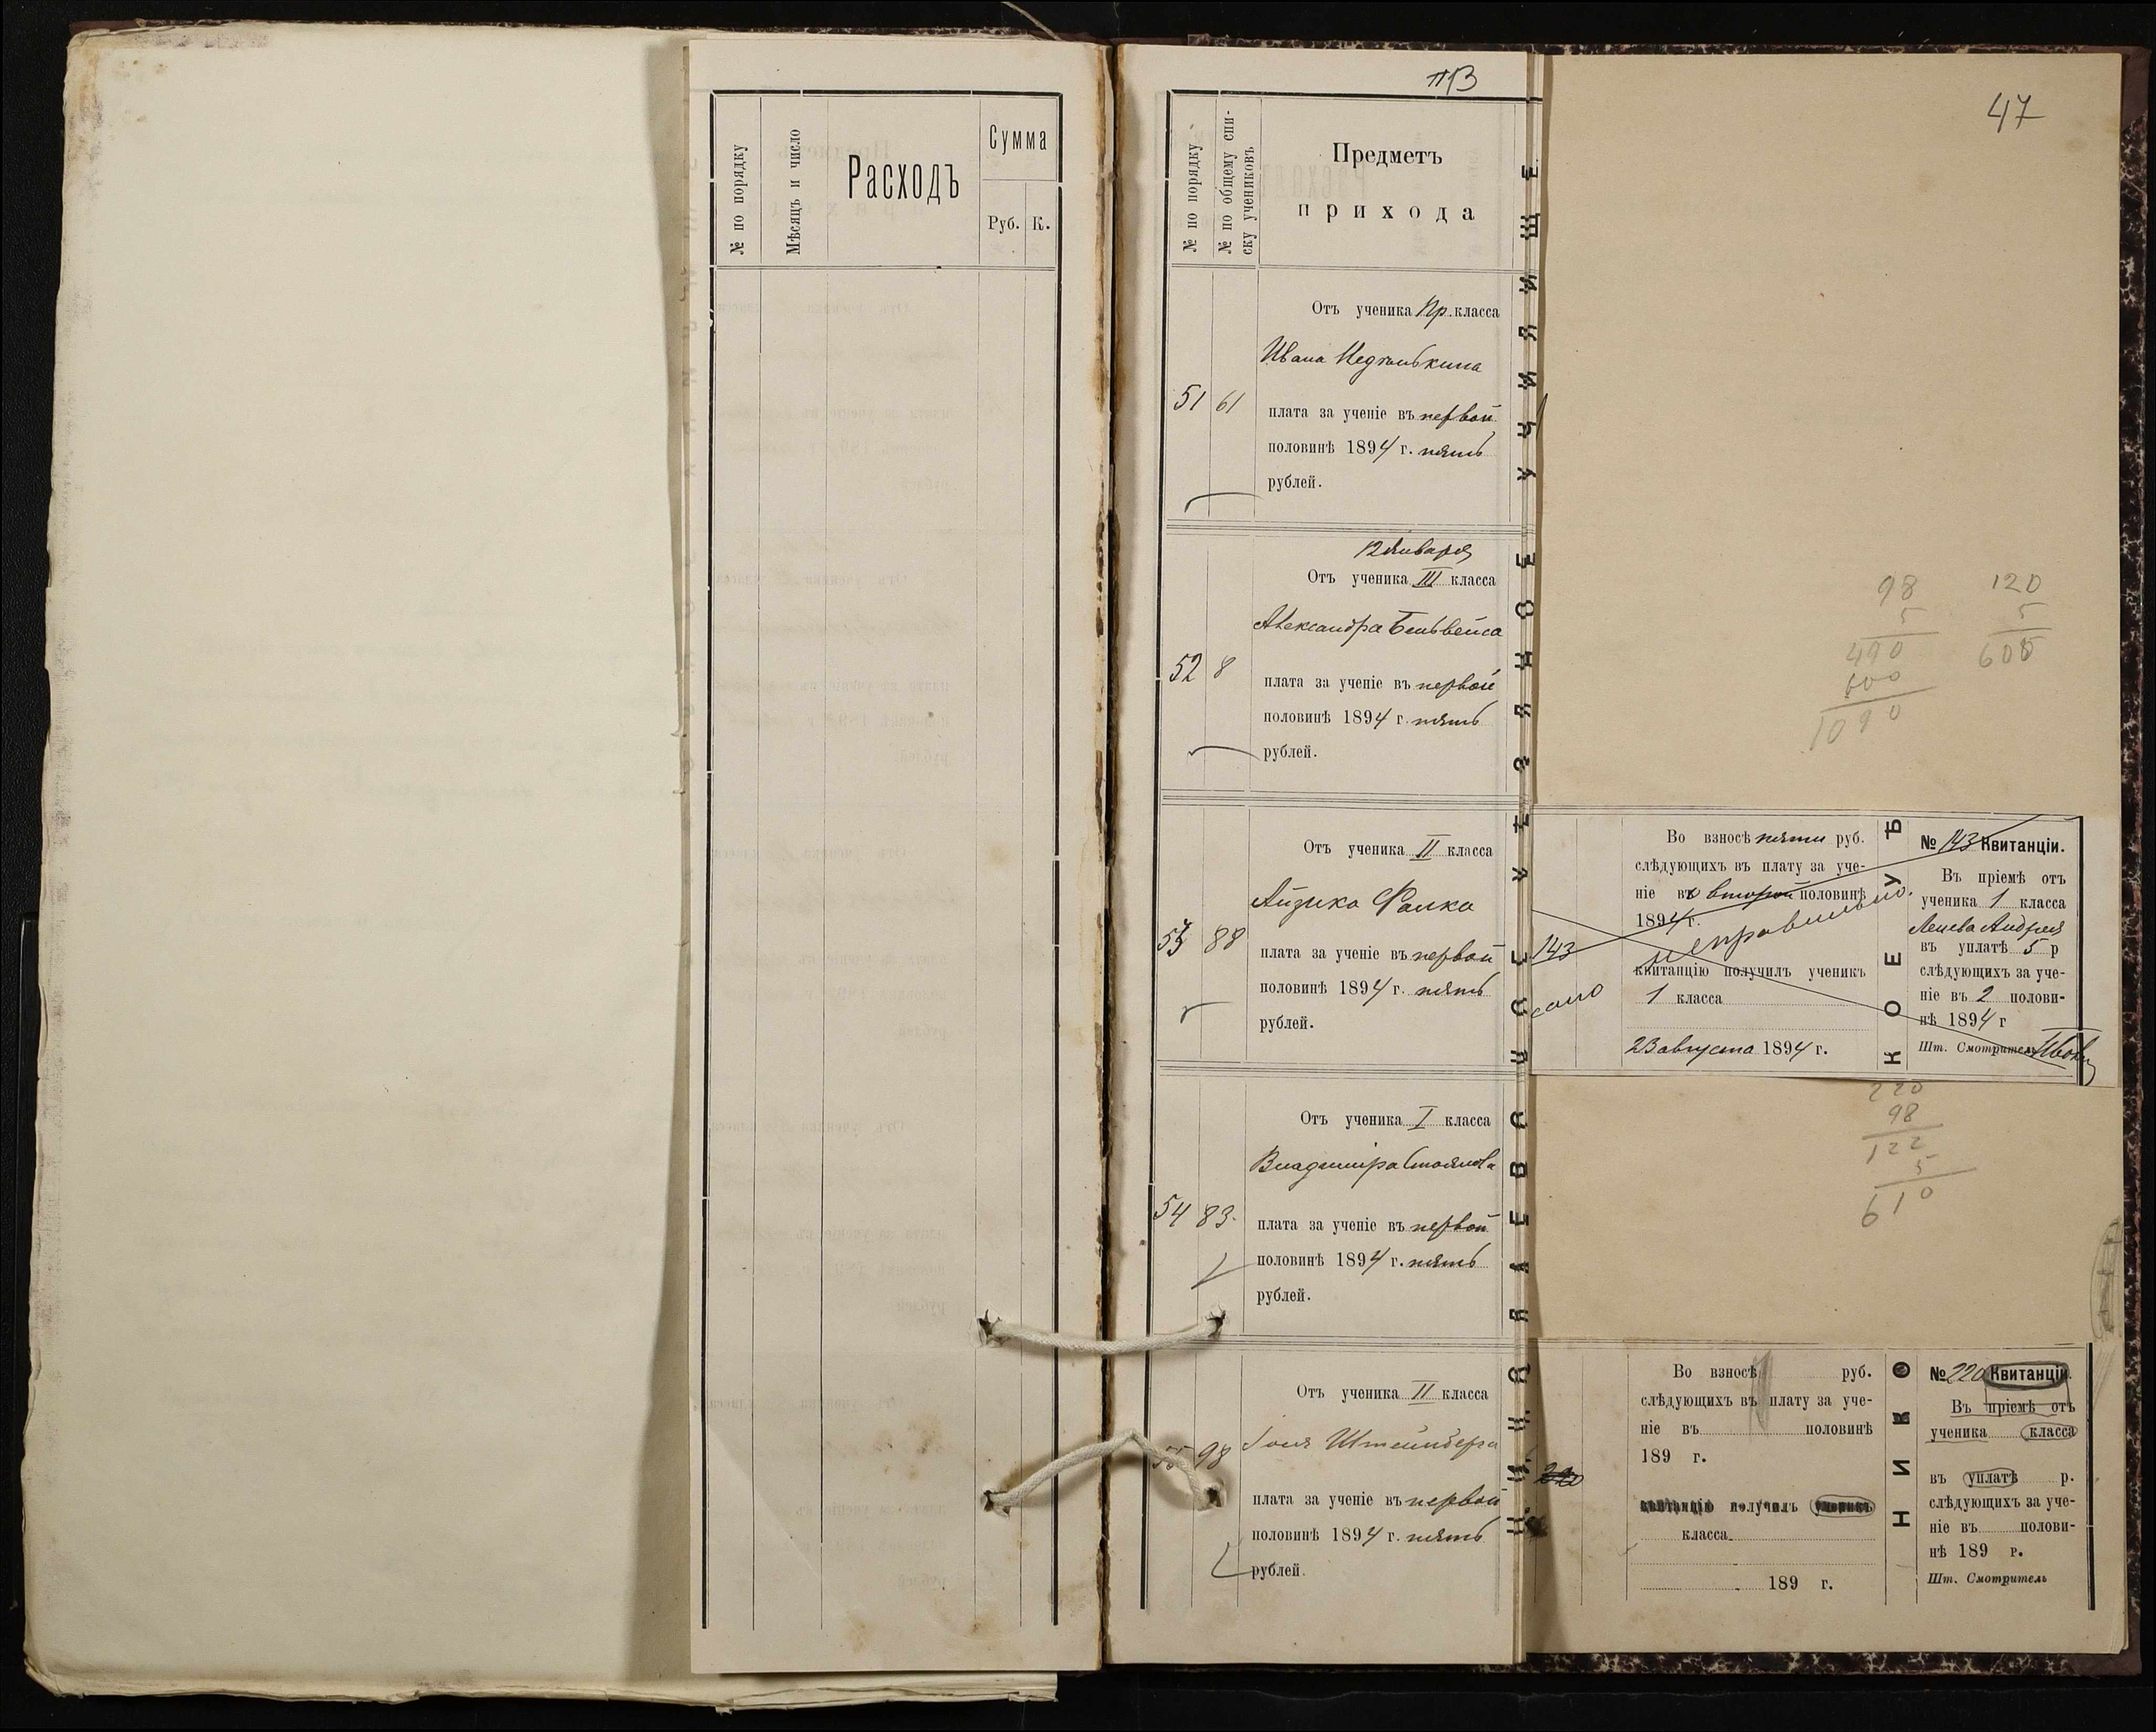 № по порядку
Мѣсяцъ и число
Расходъ
Сумма
Руб. К.
13
№ по порядку
№ по общему спи-
ску учениковъ
Предметъ
прихода
Отъ ученика Пр. класса
Ивана Недѣлькина
51 61
плата за ученіе въ первой
половинѣ 1894 г. пять
рублей.
12 Января
Отъ ученика III класса
Александра
52 8
плата за ученіе въ первой
половинѣ 1894 г. пять
рублей.
Отъ ученика II класса
Айзика Фалка
53 88
плата за ученіе въ первой
половинѣ 1894 г. пять
рублей.
Отъ ученика I класса
Владиміра Стоянова
54 83.
плата за ученіе въ первой
половинѣ 1894 г. пять
рублей.
Отъ ученика II класса
Штейнберга
55 98
плата за ученіе въ первой
половинѣ 1894 г. пять
рублей.
НИКОЛАЕВСКОЕ УѢЗДНОЕ УЧИЛИЩЕ
47
98
5
490
600
1090
120
5
600
Во взносѣ пяти руб.
слѣдующихъ въ плату за уче-
ніе во второй половинѣ
1894 г.
неправильно.
143
квитанцію получилъ ученикъ
1 класса
23 августа 1894 г.
КОЕ УѢ
№ 143 Квитанціи.
Въ пріемѣ отъ
ученика 1 класса
Андрея
въ уплатѣ 5 р
слѣдующихъ за уче-
ніе въ 2 полови-
нѣ 1894 г
Шт. Смотритель
220
98
122
5
610
Во взносѣ руб.
слѣдующихъ въ плату за уче-
ніе въ половинѣ
189 г.
220
квитанцію получилъ ученикъ
класса
189 г.
НИКО
№ 220 Квитанціи.
Въ пріемѣ отъ
ученика класса
въ уплатѣ р.
слѣдующихъ за уче-
ніе въ полови-
нѣ 189 г.
Шт. Смотритель